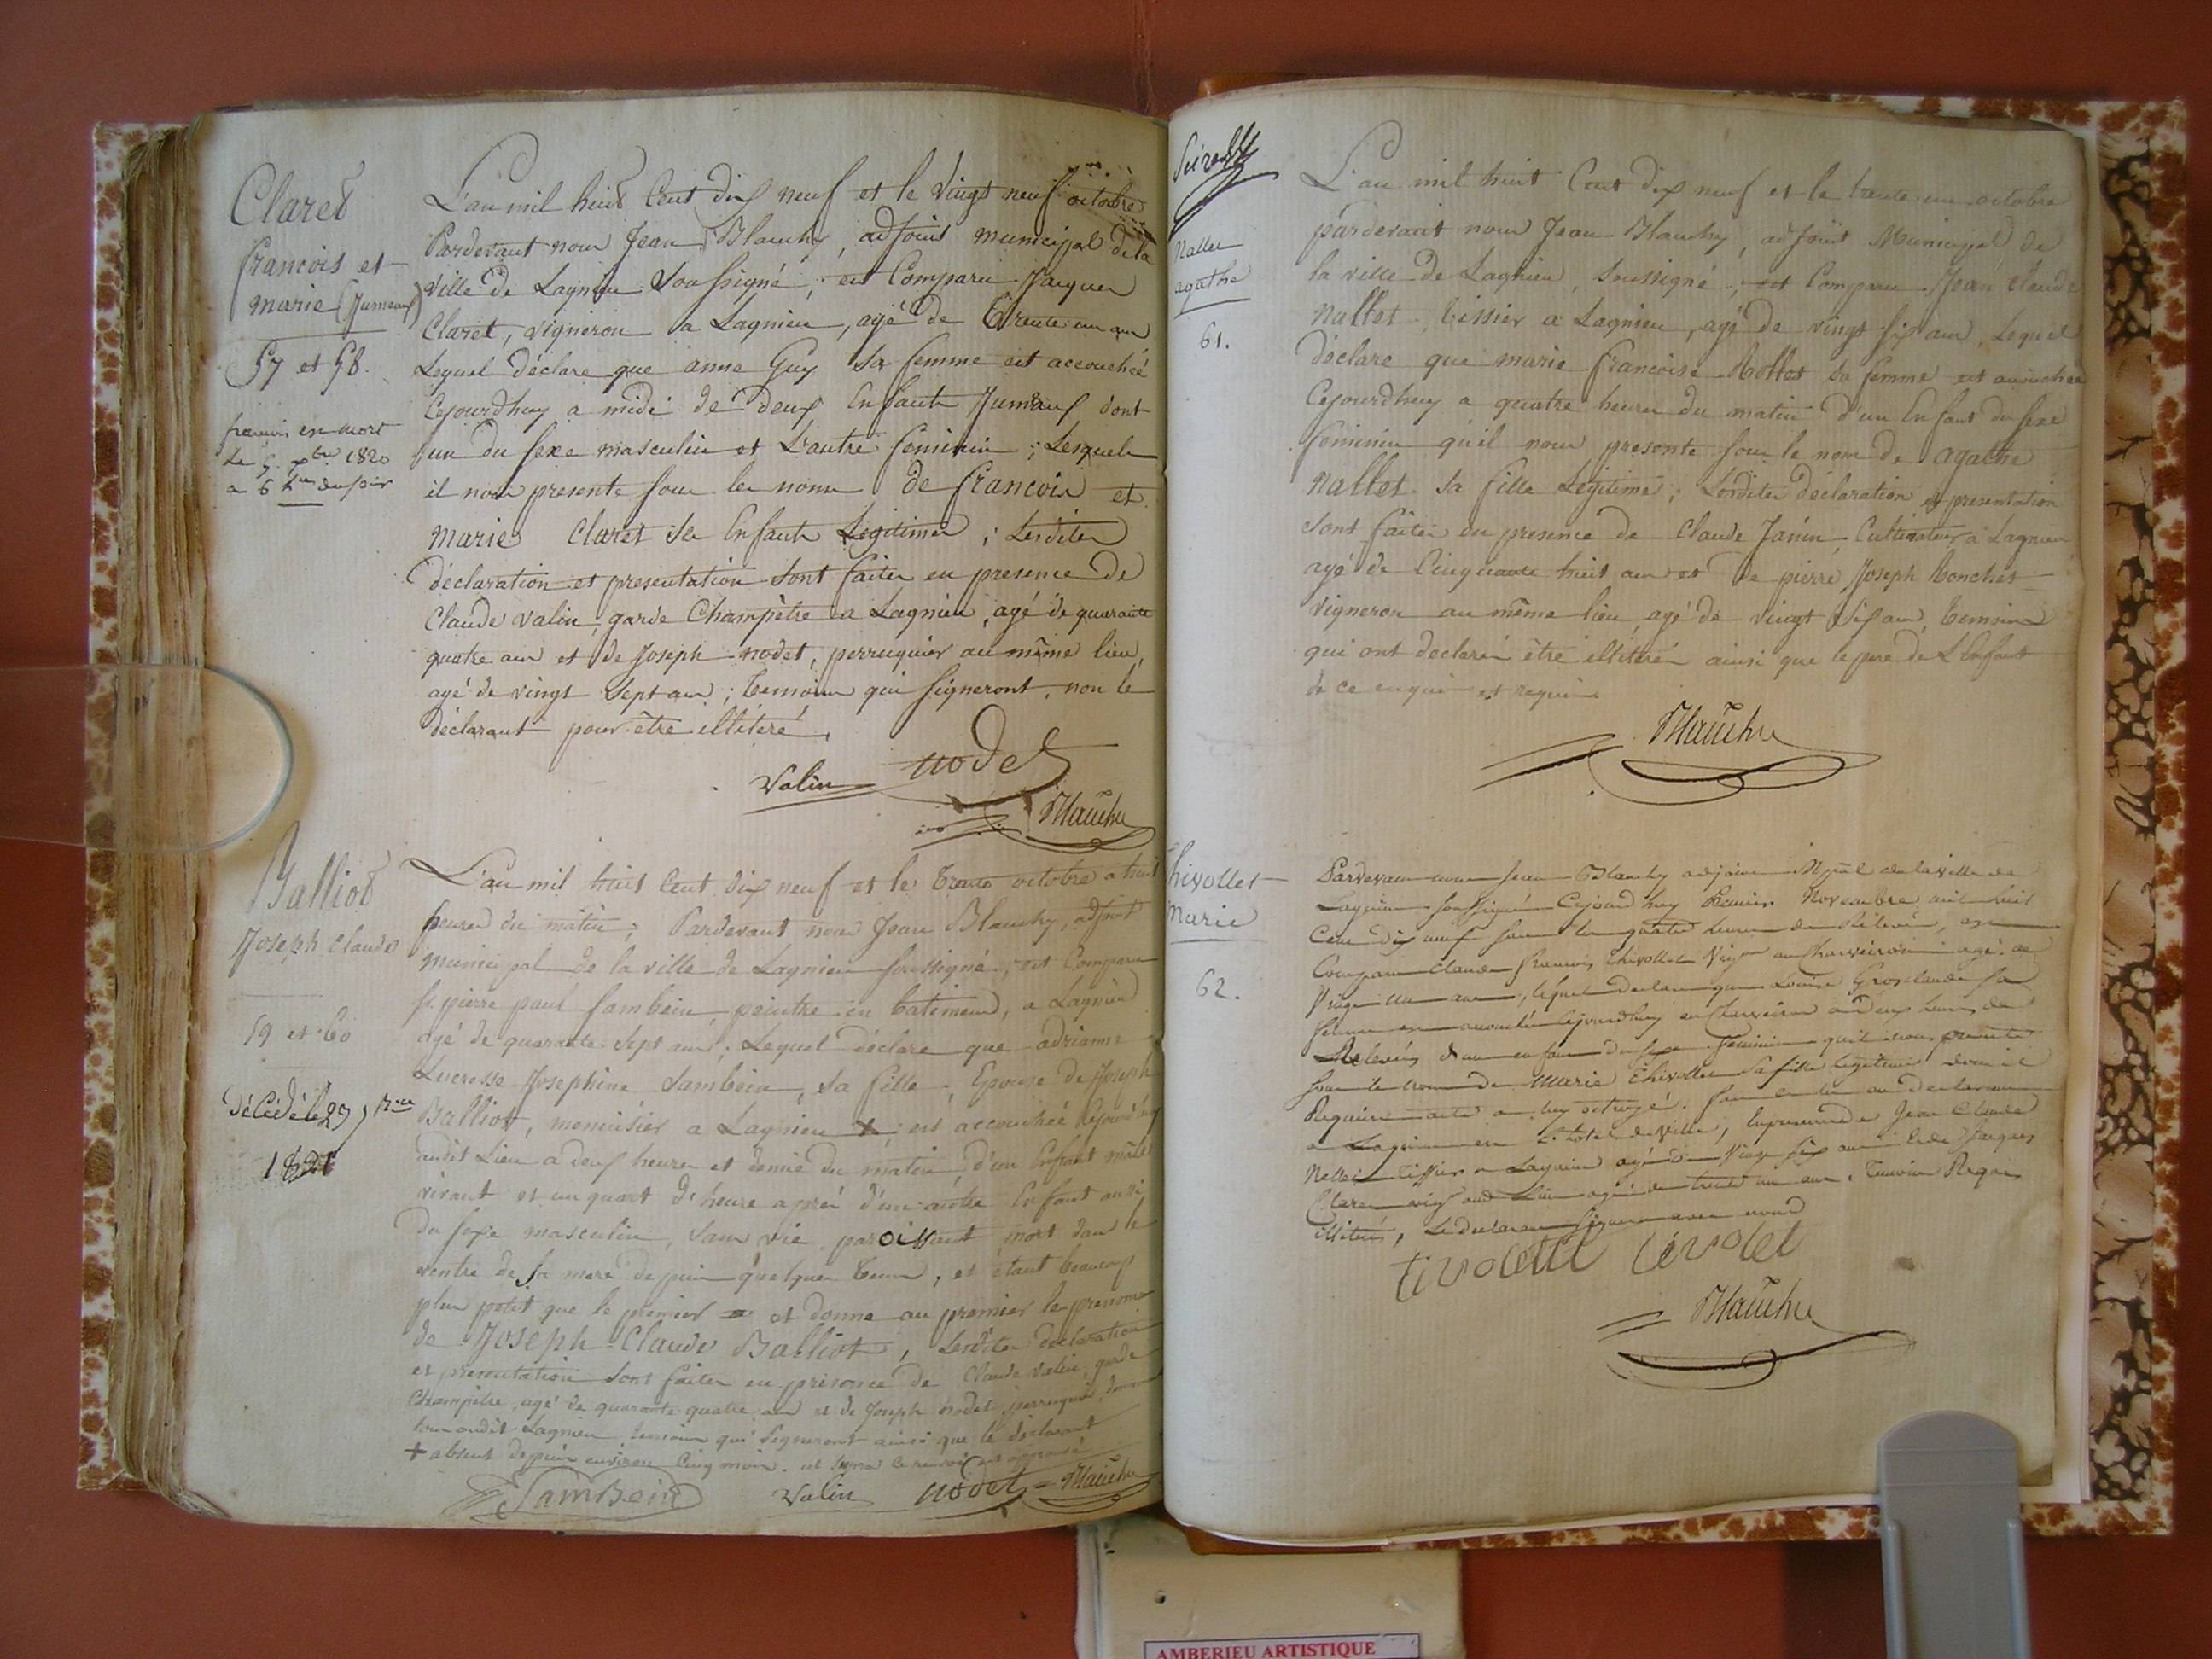 Claret
francois et
marie (Jumeaux)
57 et 58.
francois est mort
le 5 xbre 1820
a 6 hres du soir
L'an mil huit Cent dix neuf et le vingt neuf octobre
Pardevant nous Jean Blanchy, adjoint municipal dela
ville de Lagnieu Soussigné, est Comparu Jacques
Claret, vigneron a Lagnieu, agé de Trente un ans
Lequel déclare que anne Guy sa femme est accouchée
Cejourdhuy a midi de deux Enfants Jumeaux dont
l'un du sexe masculin et L'autre feminin; Lesquels
il nous presente sous les noms de francois et
marie Claret ses Enfants Legitimes; Lesdites
déclaration et presentation sont faites en presence de
Claude valin, garde Champêtre a Lagnieu, agé de quarante
quatre ans et de Joseph nodet, perruquier au même lieu,
agé de vingt sept ans; temoins qui signeront, non le
déclarant pour être illiteré,
Valin nodet
Blanchy
Balliot
Joseph Claude
59 et 60
Décédé le 29
1821
L'an mil huit Cent dix neuf et le Trente octobre a huit
heures du matin; Pardevant nous Jean Blanchy, adjoint
municipal de la ville de Lagnieu soussigné, est Comparu
sr. pierre paul Sambein, peintre en batiment, a Lagnieu
agé de quarante sept ans; Lequel déclare que adrianne
Lucresse Josephine Sambein, sa fille, Epouse de Joseph
Balliot, menuisier a Lagnieu + est accouchée Cejourd'huy
audit Lieu a deux heures et demie du matin, d'un Enfant mâle
vivant et un quart d'heure aprés d'un autre Enfant aussi
du sexe masculin, sans vie paroissant mort dans le
ventre de sa mere depuis quelques tems, et étant beaucoup
plus petit que le premier et donne au premier le prenoms
de Joseph Claude Balliot, Lesdites declaration
et presentation sont faites en présence de Claude Valin, garde
Champêtre, agé de quarante quatre ans et de Joseph nodet perruquier,
tous audit Lagnieu, temoins qui signeront ainsi que le déclarant
+ absent depuis environ Cinq mois.
Sambein Valin nodet Blanchy
Nallet
agathe
61.
L'an mil huit Cent dix neuf et le trente un octobre
pardevant nous Jean Blanchy, adjoint Municipal de
la ville de Lagnieu, Soussigné, est Comparu Jean Claude
Nallet, tissier a Lagnieu, agé de vingt six ans, Lequel
déclare que marie francoise Mottet sa femme est accouchée
Cejourdhuy a quatre heures du matin d'un Enfant du sexe
feminin qu'il nous presente sous le nom de agathe
Nallet sa fille Legitime; Lesdites déclaration et presentation
sont faites en presence de Claude Janin, Cultivateur a Lagnieu
agé de Cinquante huit ans et de pierre Joseph
vigneron au même lieu agé de vingt six ans, temoins
qui ont declarés être illiterés ainsi que le pere de L'Enfant
de ce enquis et requis
Blanchy
Chivollet
Marie
62.
Pardevant nous Jean Blanchy adjoint Mpal de la ville de
Lagnieu soussigné Cejourd'huy Premier Novembre mil huit
Cent dix neuf sur les quatre heures de Relevée, est
Comparu Claude francois Chivollet Vign au Charveiron agé de
Vingt un ans, lequel declare que Louise Grosclaude sa
femme est accouchée Cejourdhuy au Charveiron a Deux heures de
Relevée d'un enfant du sexe feminin qu'il nous presente
sous le nom de Marie Chivollet sa fille legitime dont il
Requiere acte a luy octroyé. fait et lu au declarant
a Lagnieu en L'hotel de Ville, En presence de Jean Claude
Nallet tissier a Lagnieu agé de Vingt six ans et de Jacques
Claret vign aud. Lieu agé de trente un ans, Temoins Requis
illiterés, Le declarant signera avec nous
Blanchy
AMBERIEU ARTISTIQUE